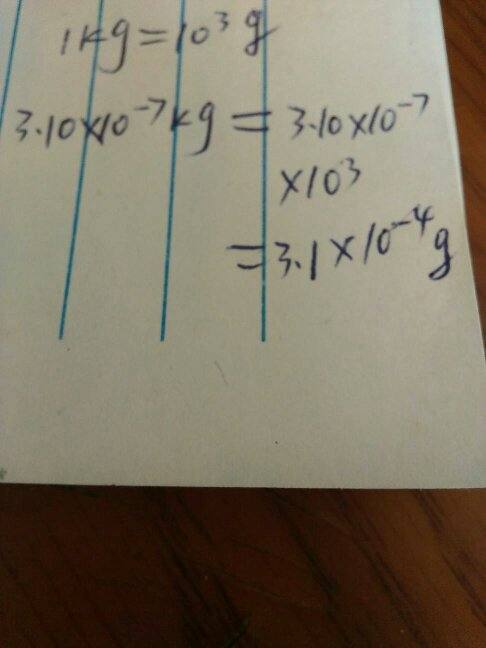 1kg=10³g
3.10×10⁻⁷kg = 3.10×10⁻⁷
×10³
=3.1×10⁻⁴g